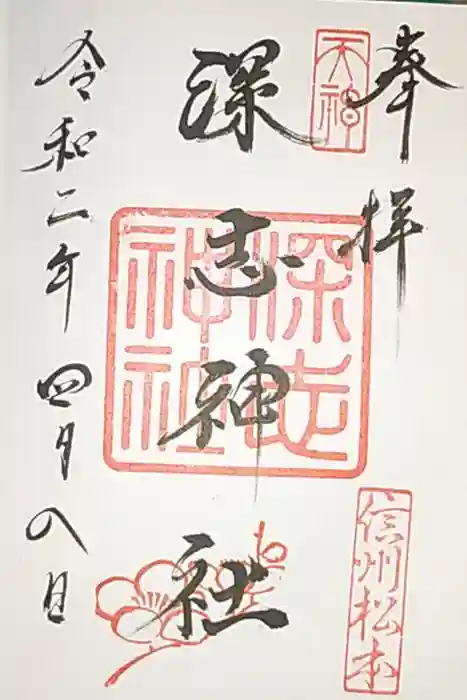 奉拝
天神
深志神社
深志神社
信州松本
令和二年四月八日